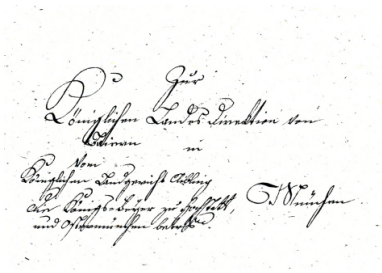 Zur
Königlichen Landes Direktion von
Baiern in
Vom
Königlichen Landgericht Aibling
die Königsbeyer zu Hochstätt, München
und Ostermünchen betref.